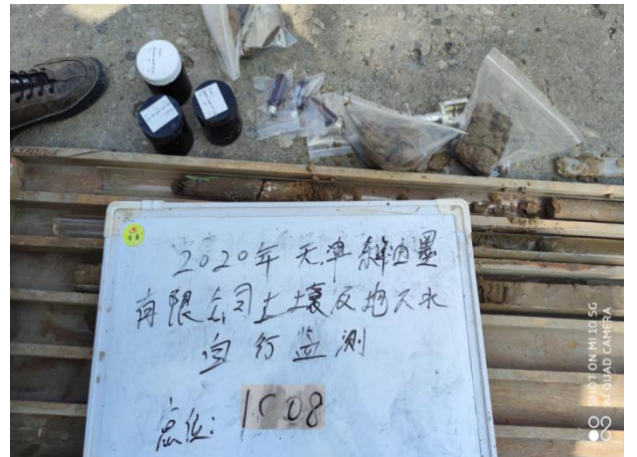 2020年 天津 油墨
有限公司土壤及地下水
自行监测
点位: 1C08
SHOT ON MI 10 5G
AI QUAD CAMERA